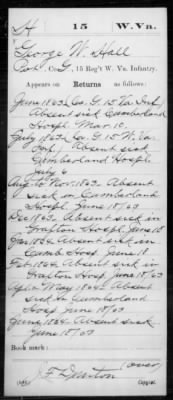 H 15 W. Va.
George W. Hall
Co. G, 15 Reg't W. Va. Infantry.
Appears on Returns as follows:
June 1863, Co. G. 15 Va Inf
Absent sick Cumberland
Hospl Mar 10,
July 1863, Co. G 15 W. Va
Inf Absent sick
Cumberland Hospl
July 6
Aug. to Nov. 1863. Absent
sick Cumberland
Hospl June 18/63
Dec 1863. Absent sick in
Grafton Hospl June 18
Jan 1864 Absent sick in
Cumb Hosp June 18
Feb 1864, Absent sick in
Grafton Hosp June 18/63
Apl May 1864. Absent
sick Cumberland
Hosp June 18/63
June 1864 Absent sick
June 18/63
Book mark:
(over)
Copyist.